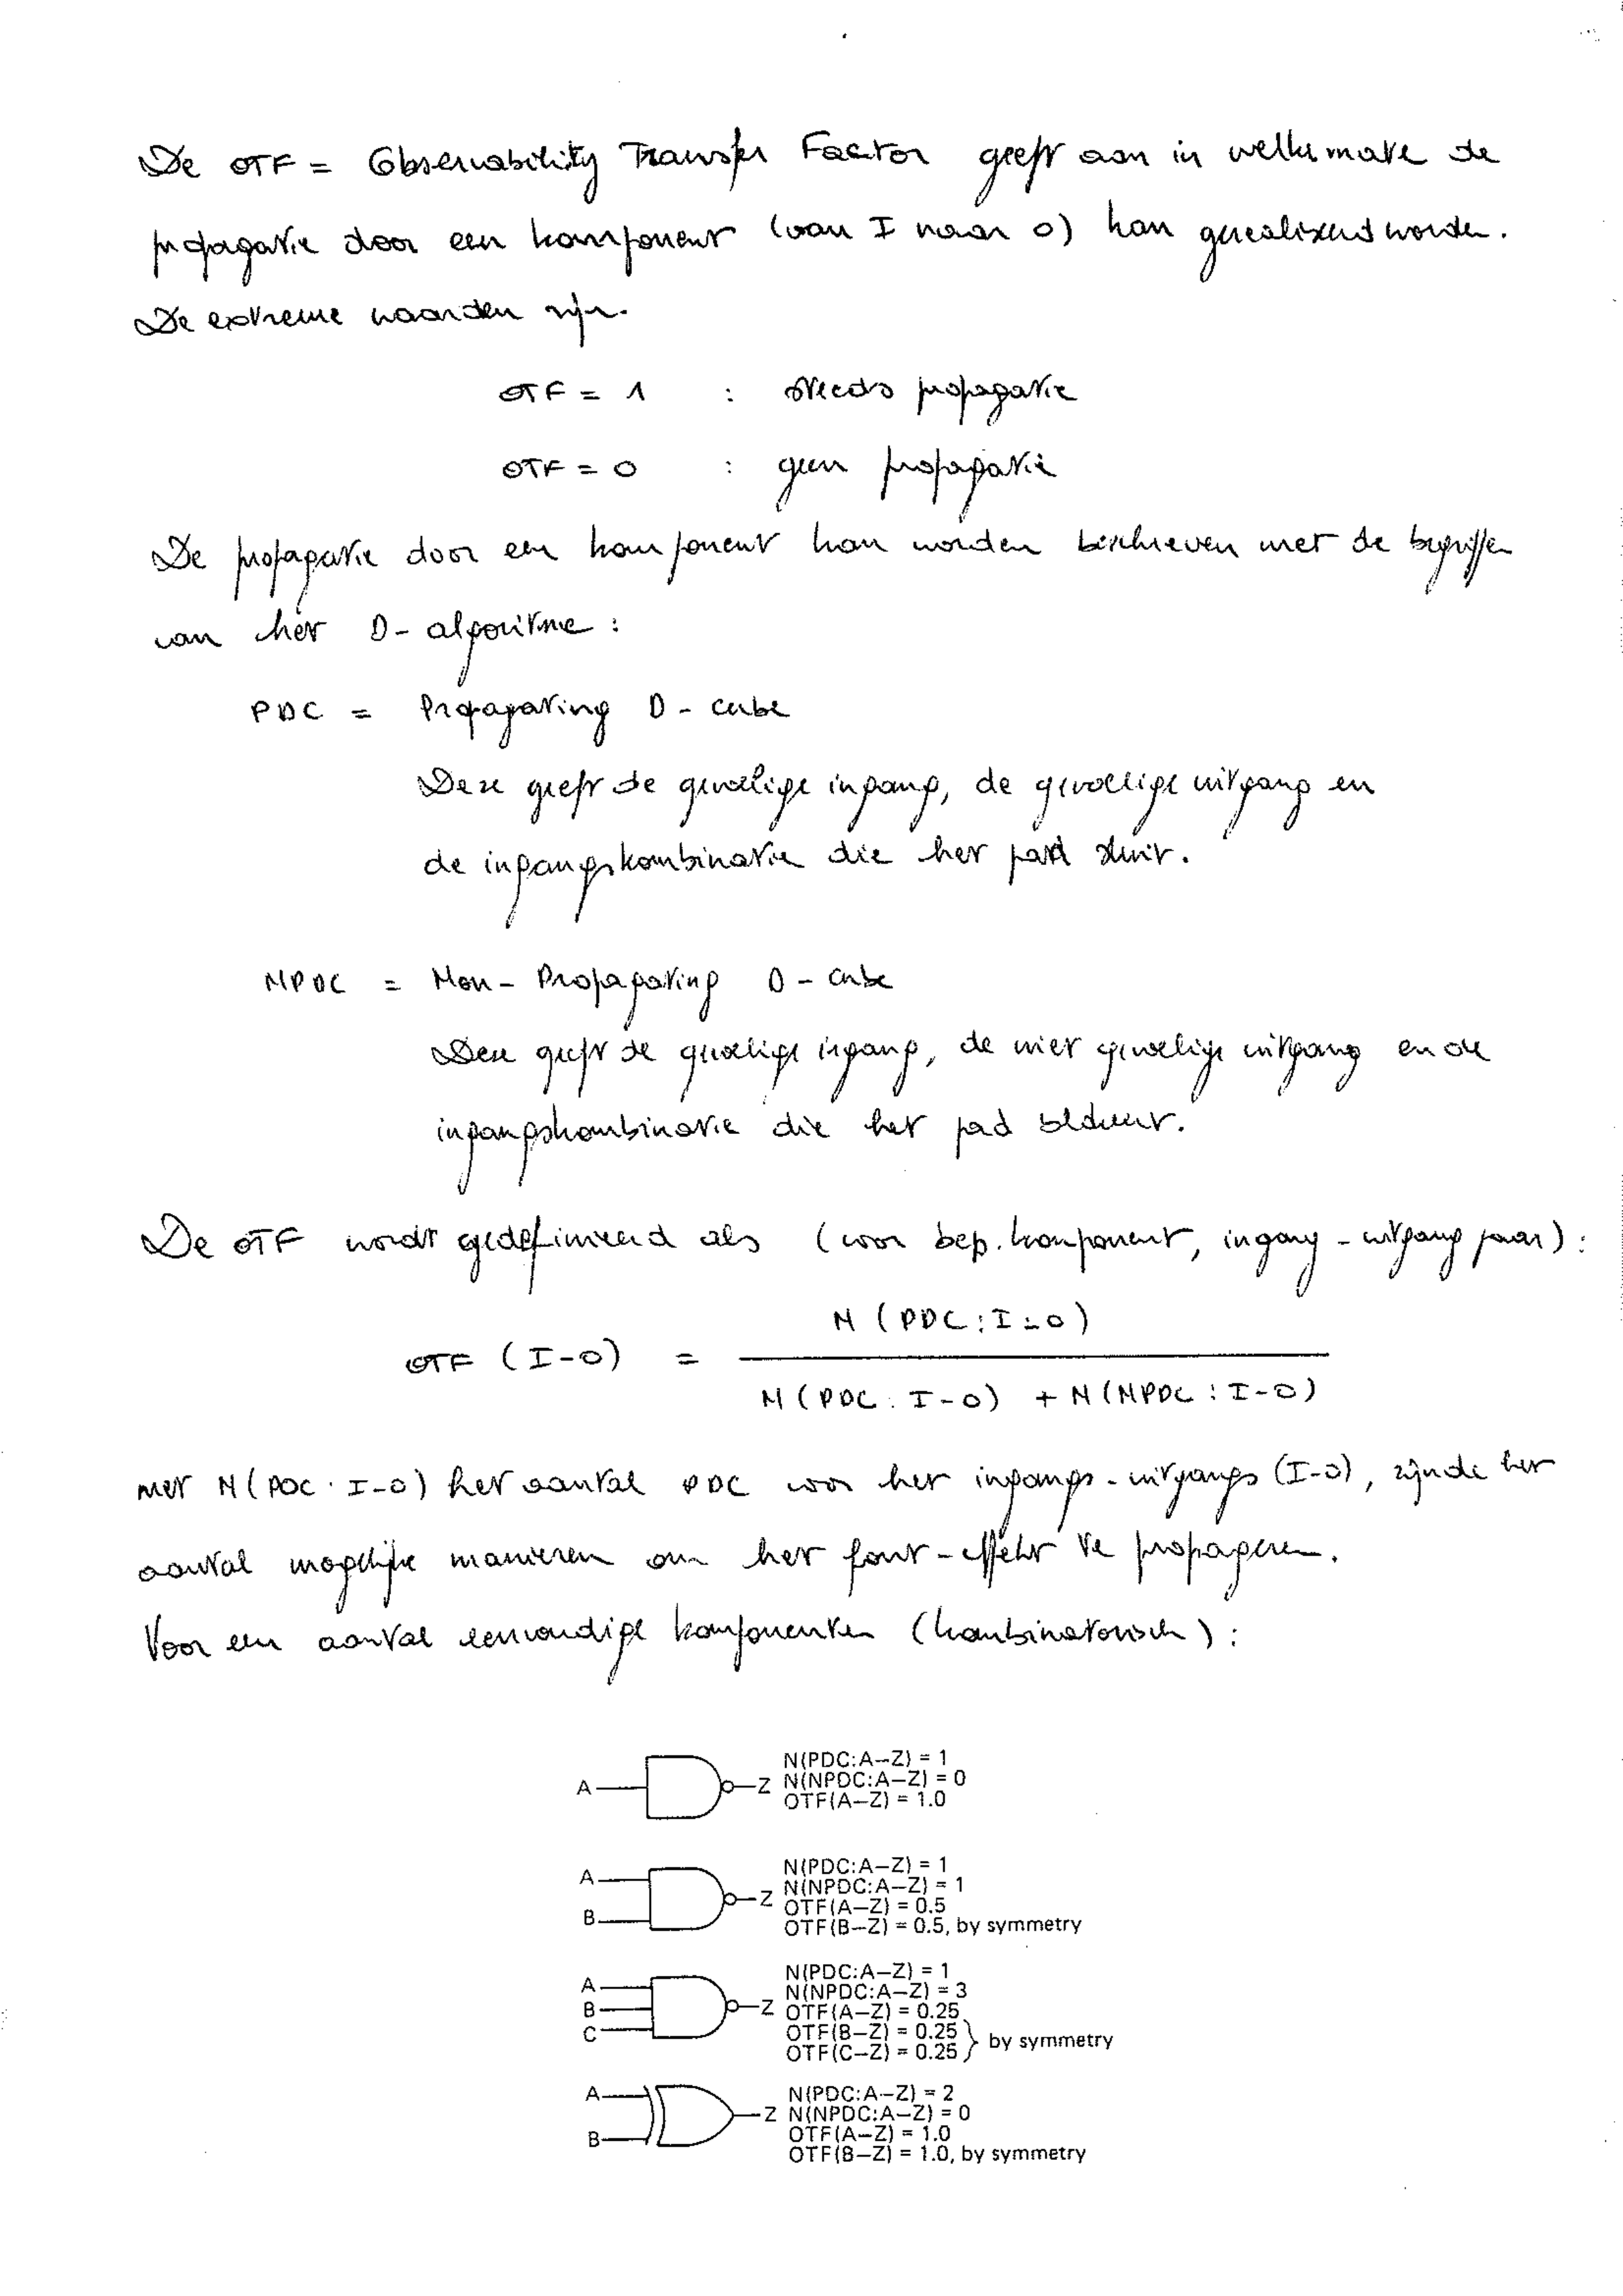 De OTF = Observability Transfer Factor geeft aan in welke mate de
propagatie door een komponent (van I naar O) kan gerealiseerd worden.
De extreme waarden zijn.
OTF = 1 : steeds propagatie
OTF = 0 : geen propagatie
De propagatie door een komponent kan worden beschreven met de begrippen
van het D-algoritme :
PDC = Propagating D-cube
Deze geeft de gevoelige ingang, de gevoelige uitgang en
de ingangskombinatie die het pad sluit.
NPDC = Non-Propagating D-cube
Deze geeft de gevoelige ingang, de niet gevoelige uitgang en de
ingangskombinatie die het pad blokkeert.
De OTF wordt gedefinieerd als (voor bep. komponent, ingang-uitgang paar) :
N (PDC : I-O)
OTF (I-O) =
N (PDC : I-O) + N (NPDC : I-O)
met N (PDC : I-O) het aantal PDC voor het ingangs-uitgangs (I-O), zijnde het
aantal mogelijke manieren om het fout-effekt te propageren.
Voor een aantal eenvoudige komponenten (kombinatorisch) :
N(PDC:A–Z) = 1
A Z N(NPDC:A–Z) = 0
OTF(A–Z) = 1.0
N(PDC:A–Z) = 1
A N(NPDC:A–Z) = 1
Z OTF(A–Z) = 0.5
B OTF(B–Z) = 0.5, by symmetry
N(PDC:A–Z) = 1
A N(NPDC:A–Z) = 3
B Z OTF(A–Z) = 0.25
C OTF(B–Z) = 0.25
OTF(C–Z) = 0.25 } by symmetry
A N(PDC:A–Z) = 2
Z N(NPDC:A–Z) = 0
B OTF(A–Z) = 1.0
OTF(B–Z) = 1.0, by symmetry